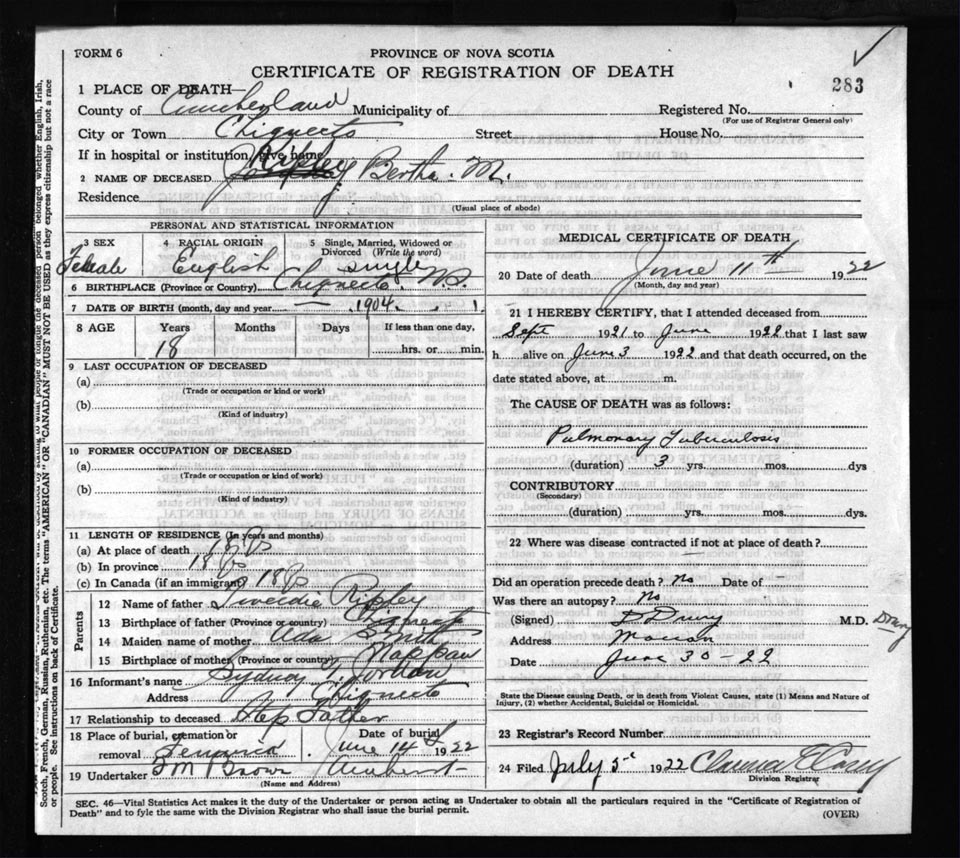 FORM 6
PROVINCE OF NOVA SCOTIA
CERTIFICATE OF REGISTRATION OF DEATH
283
1 PLACE OF DEATH—
County of Cumberland Municipality of Registered No.
(For use of Registrar General only)
City or Town Chignecto Street House No.
If in hospital or institution, give name
2 NAME OF DECEASED Ripley Bertha. M.
Residence
(Usual place of abode)
PERSONAL AND STATISTICAL INFORMATION
3 SEX 4 RACIAL ORIGIN 5 Single, Married, Widowed or Divorced (Write the word)
Female English single
6 BIRTHPLACE (Province or Country) Chignecto. N.S.
7 DATE OF BIRTH (month, day and year 1904. 1
8 AGE Years Months Days If less than one day,
18 hrs. or min.
9 LAST OCCUPATION OF DECEASED
(a)
(Trade or occupation or kind of work)
(b)
(Kind of industry)
10 FORMER OCCUPATION OF DECEASED
(a)
(Trade or occupation or kind of work)
(b)
(Kind of industry)
11 LENGTH OF RESIDENCE (In years and months)
(a) At place of death 18 yrs
(b) In province 18 yrs
(c) In Canada (if an immigrant) 18 yrs
Parents
12 Name of father Ripley
13 Birthplace of father (Province or country) Chignecto
14 Maiden name of mother Ada Smith
15 Birthplace of mother (Province or country) Maccan
16 Informant's name Sydney
Address Chignecto
17 Relationship to deceased Step Father
18 Place of burial, cremation or removal Fenwick Date of burial June 14th 1922
19 Undertaker Brown Amherst
(Name and Address)
MEDICAL CERTIFICATE OF DEATH
20 Date of death June 11th 1922
(Month, day and year)
21 I HEREBY CERTIFY, that I attended deceased from
Sept 1921 to June 1922 that I last saw
h alive on June 3 1922 and that death occurred, on the
date stated above, at m.
The CAUSE OF DEATH was as follows:
Pulmonary Tuberculosis
(duration) 3 yrs. mos. dys
CONTRIBUTORY
(Secondary)
(duration) yrs. mos. dys.
22 Where was disease contracted if not at place of death?
Did an operation precede death? No Date of
Was there an autopsy? No
(Signed) D Drury M.D. Drury
Address Maccan
Date June 30-22
State the Disease causing Death, or in death from Violent Causes, state (1) Means and Nature of
Injury, (2) whether Accidental, Suicidal or Homicidal.
23 Registrar's Record Number
24 Filed July 5 1922
Division Registrar
SEC. 46—Vital Statistics Act makes it the duty of the Undertaker or person acting as Undertaker to obtain all the particulars required in the "Certificate of Registration of
Death" and to fyle the same with the Division Registrar who shall issue the burial permit.
(OVER)
Scotch, French, German, Russian, Ruthenian, etc. The terms "AMERICAN" OR "CANADIAN" MUST NOT BE USED as they express citizenship but not a race
or people. See instructions on back of Certificate.